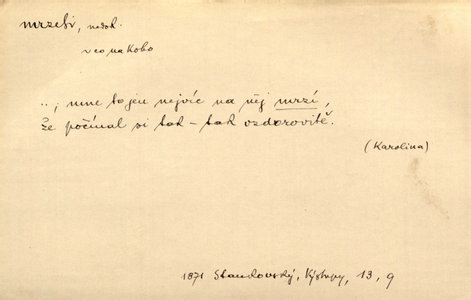 mrzeti, nedok.
veo na koho
.., mne to jen nejvíc na něj mrzí,
že počínal si tak - tak vzdorovitě.
(Karolina)
1871 Stankovský, Výstupy, 13, 9